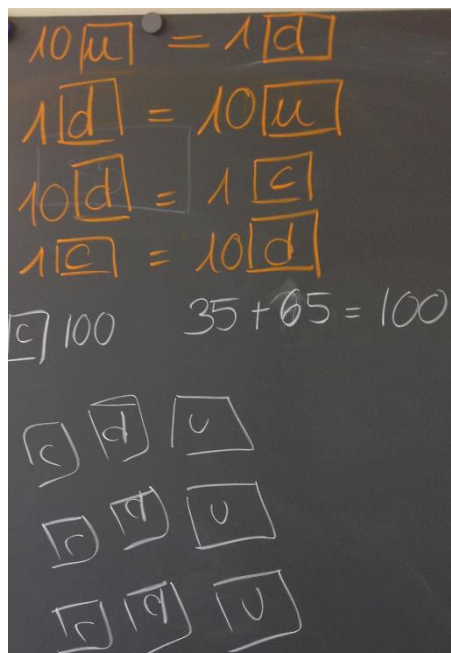 10 u = 1 d
1 d = 10 u
10 d = 1 c
1 c = 10 d
c 100 35 + 65 = 100
c d u
c d u
c d u